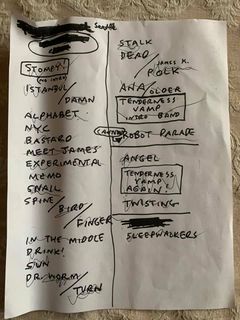 Seattle
STOMPY!
(no intro)
ISTANBUL
/ DAMN
ALPHABET
NYC
BASTARD
MEET JAMES
EXPERIMENTAL
MEMO
SNAIL
SPINE / BIRD
/ FINGER
IN THE MIDDLE
DRINK!
SUN
DR WORM
/ TURN
STALK
DEAD / James K.
POLK
ANA / OLDER
TENDERNESS
VAMP
INTRO BAND
ROBOT PARADE
ANGEL
TENDERNESS
VAMP
AGAIN!
TWISTING
SLEEPWALKERS